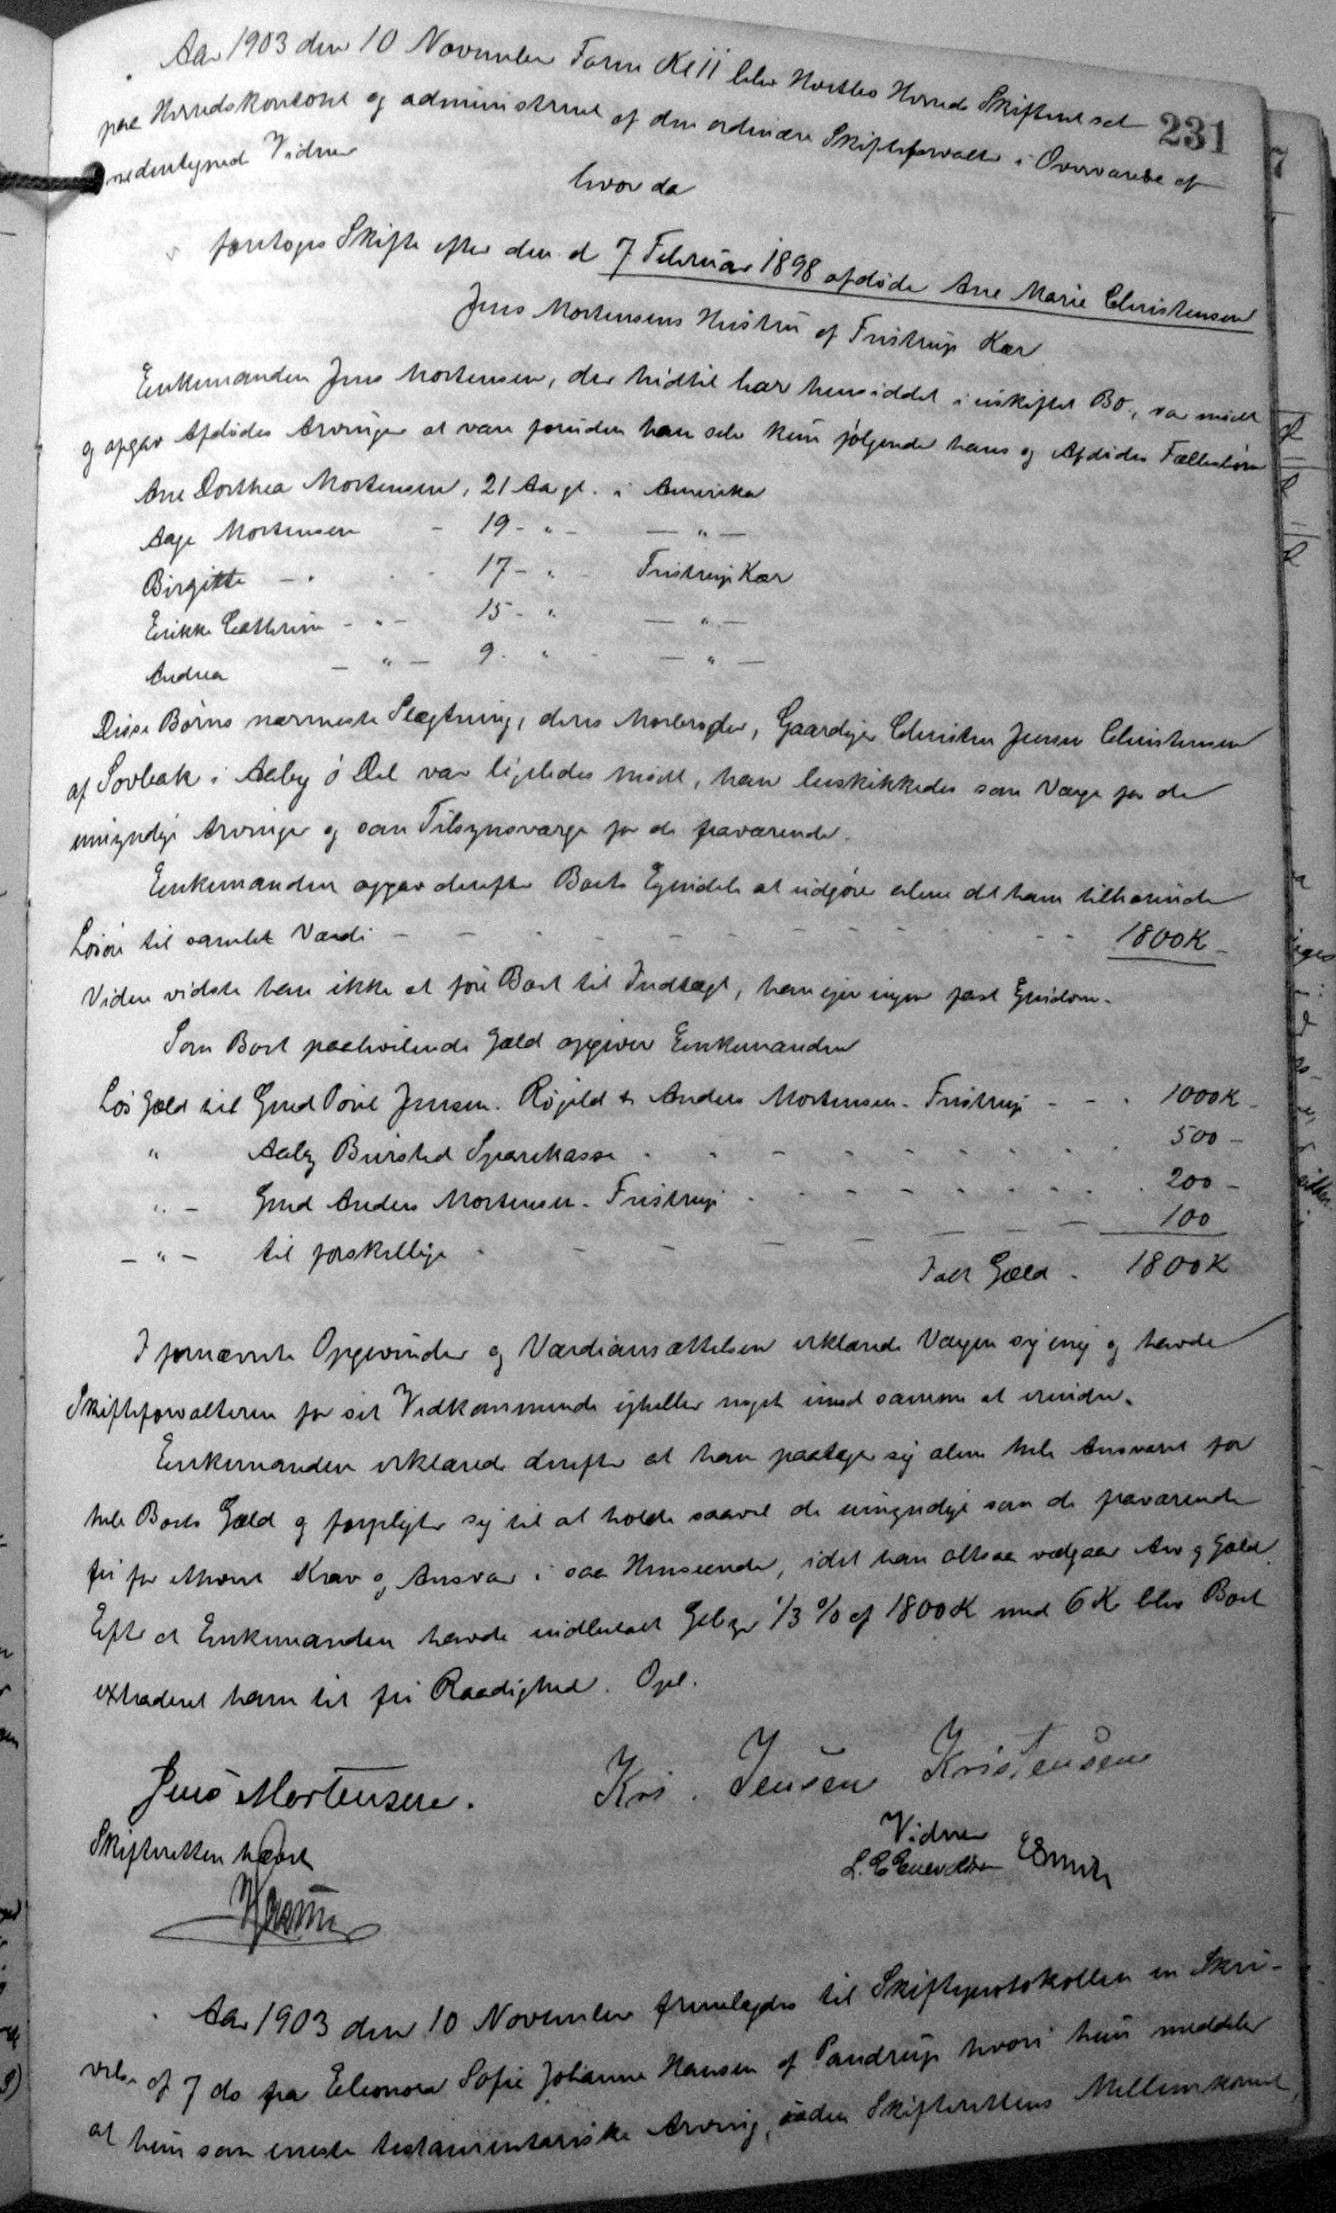 Aar 1903 den 10 November Form Kl 11 blev Hvetbo Herreds Skifteret sat
231
paa Herredskontoret og administreret af den ordinære Skifteforvalter i Overværelse af
nedentegnede Vidner
hvor da
foretoges Skifte efter den d 7 Februar 1898 afdøde Ane Marie Christensen
Jens Mortensens Hustru af Fristrup Kær
Enkemanden Jens Mortensen, der hidtil har hensiddet i uskiftet Bo, var mødt
og opgav Afdødes Arvinger at være foruden ham selv kun følgende hans og Afdødes Fællesbørn
Ane Dorthea Mortensen, 21 Aar gl. i Amerika
Aage Mortensen - 19 - " - — " —
Birgitte - " - 17 - " - Fristrup Kær
Erikke Cathrine - " - 15 - " — " —
Andrea — " — 9 - " - — " —
Disse Børns nærmeste Slægtning, deres Morbroder, Gaardejer Christen Jensen Christensen
af Sovbak i Aaby ø Del var ligeledes mødt, han beskikkedes som Værge for de
umyndige Arvinger og som Tilsynsværge for de fraværende.
Enkemanden opgav derefter Boets Ejendele at udgøre alene det ham tilhørende
Løsøre til samlet Værdi - - - - 1800 K -
Videre vidste han ikke at føre Boet til Indtægt, han ejer ingen fast Ejendom.
Som Boet paahvilende Gæld opgiver Enkemanden
Løs Gæld til Gmd Povl Jensen. Røgild & Anders Mortensen - Fristrup - - - 1000 K -
" Aaby Biersted Sparekasse - - - - 500 -
" - Gmd Anders Mortensen - Fristrup - - - - 200 -
— " — til forskellige - - - - 100
Ialt Gæld - 1800 K
I fornævnte Opgivender og Værdiansættelsen erklærede Værgen sig enig og havde
Skifteforvalteren for sit Vedkommende ejheller noget imod samme at erindre.
Enkemanden erklærede derefter at han paatager sig alene hele Ansvaret for
hele Boets Gæld og forpligter sig til at holde saavel de umyndige som de fraværende
fri for ethvert Krav og Ansvar i saa Henseende, idet han altsaa vedgaar Arv og Gæld.
Efter at Enkemanden havde indbetalt Gebyr 1/3 % af 1800 K med 6 K blev Boet
extraderet ham til fri Raadighed. Opl.
Jens Mortensen. Kri. Jensen Kristensen
Skifteretten hævet Vidner
L. C. ESmith
Aar 1903 den 10 November fremlagdes til Skifteprotokollen en Skri-
velse af 7 ds fra Eleonora Sofie Johanne Hansen af Pandrup hvori hun meddeler
at hun som eneste testamentariske Arving, uden Skifterettens Mellemkomst,